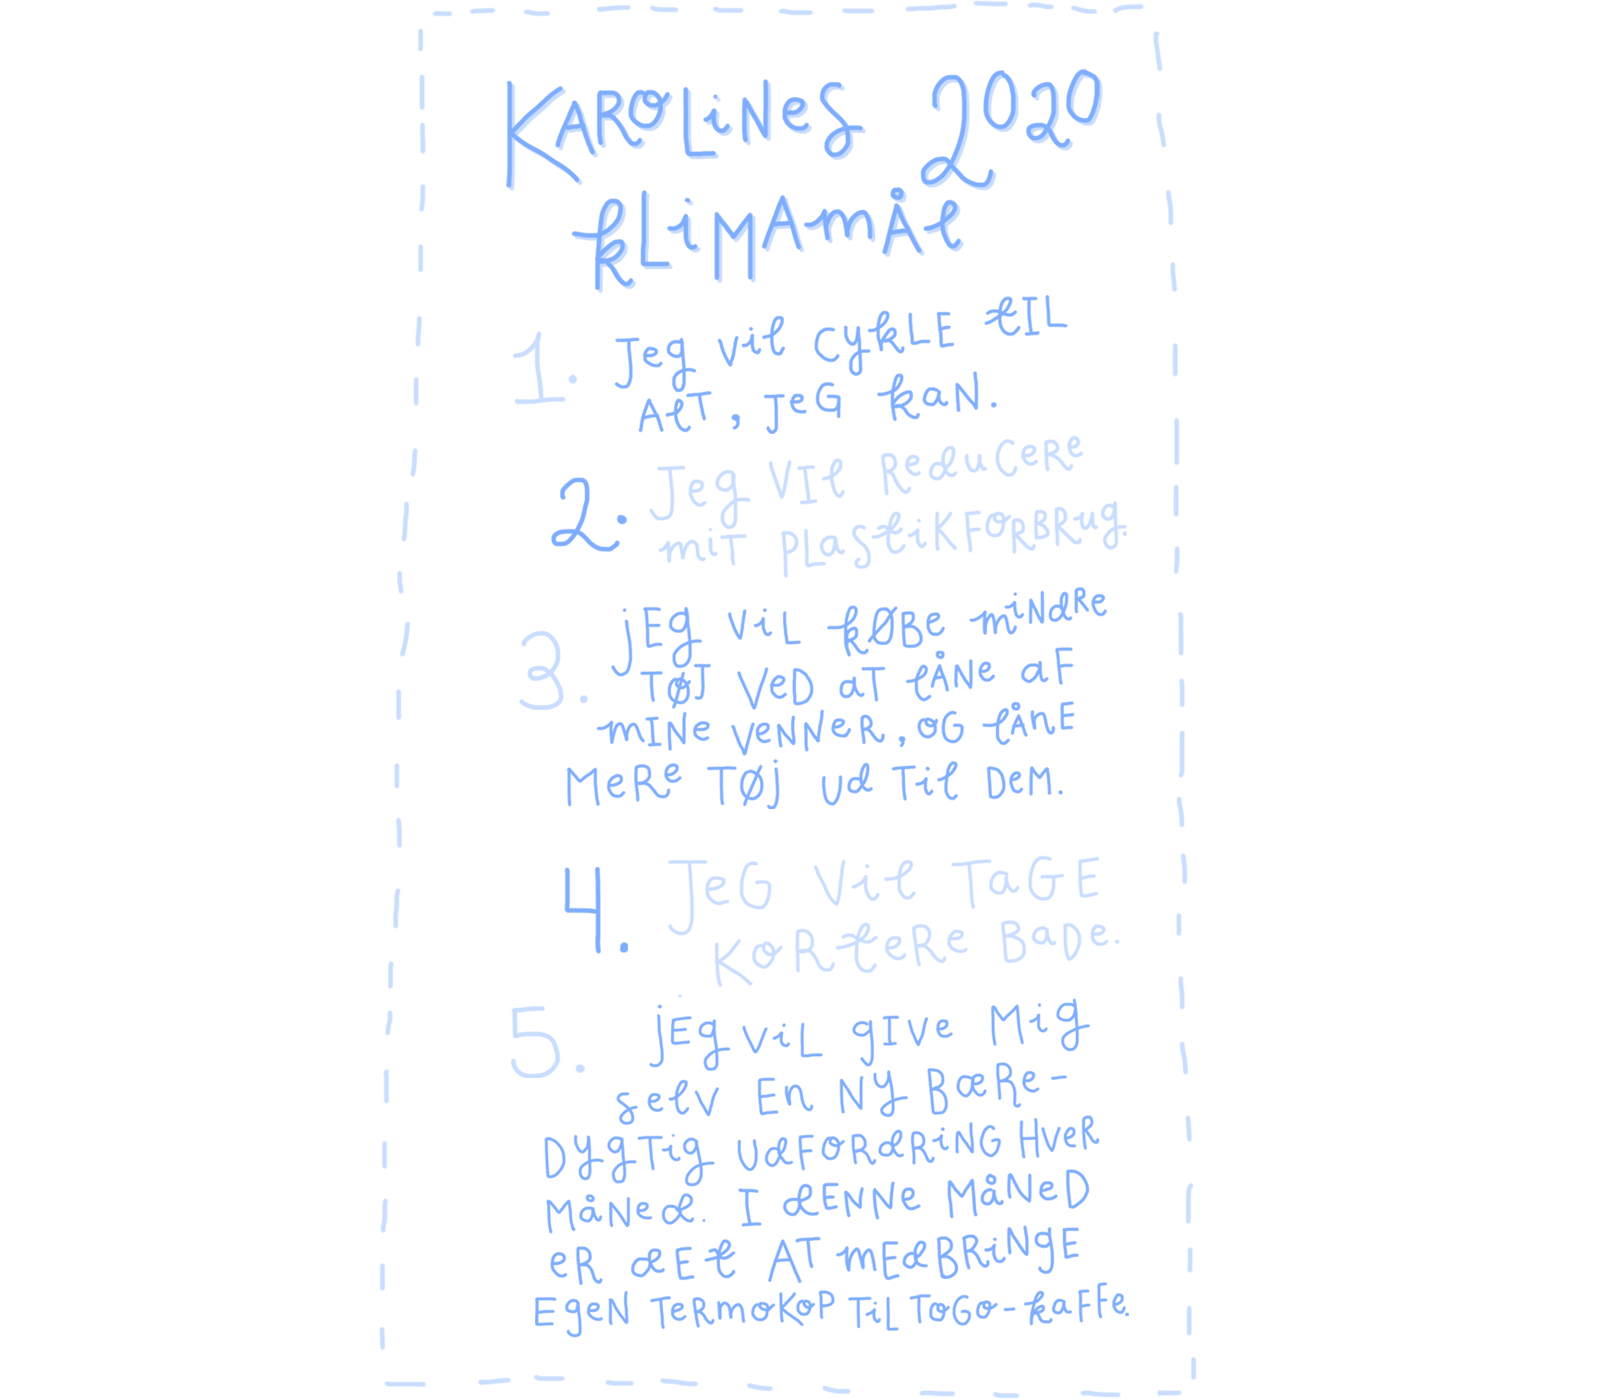 KAROLINES 2020
KLIMAMÅL
1. Jeg vil cykle til
alt, jeg kan.
2. Jeg vil reducere
mit plastikforbrug.
3. Jeg vil købe mindre
tøj ved at låne af
mine venner, og låne
mere tøj ud til dem.
4. Jeg vil tage
kortere bade.
5. Jeg vil give mig
selv en ny bære-
dygtig udfordring hver
måned. I denne måned
er det at medbringe
egen termokop til togo-kaffe.